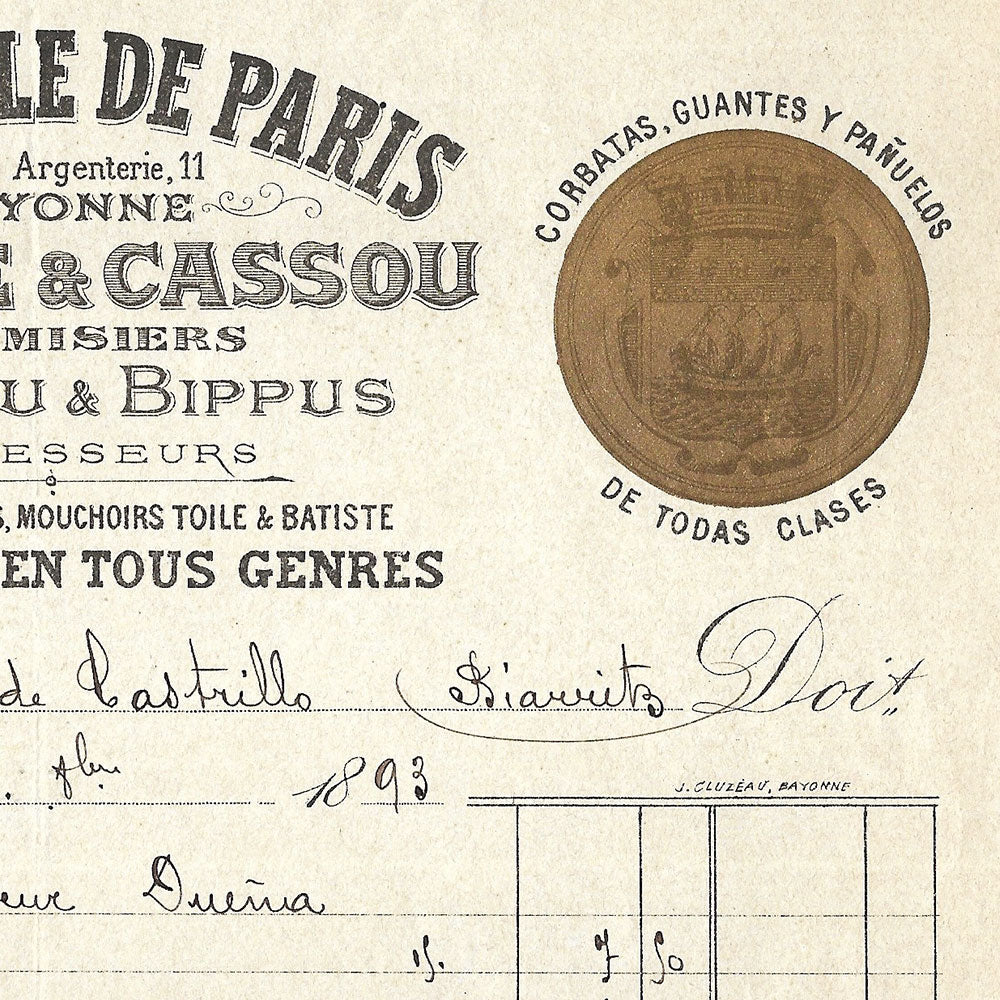 LE DE PARIS
Argenterie, 11
YONNE
E & CASSOU
MISIERS
U & BIPPUS
ESSEURS
S, MOUCHOIRS TOILE & BATISTE
EN TOUS GENRES
CORBATAS, GUANTES Y PAÑUELOS
DE TODAS CLASES
de Castrillo Biarritz Doit
1893
J. CLUZEAU, BAYONNE
eur Dueña
7 50